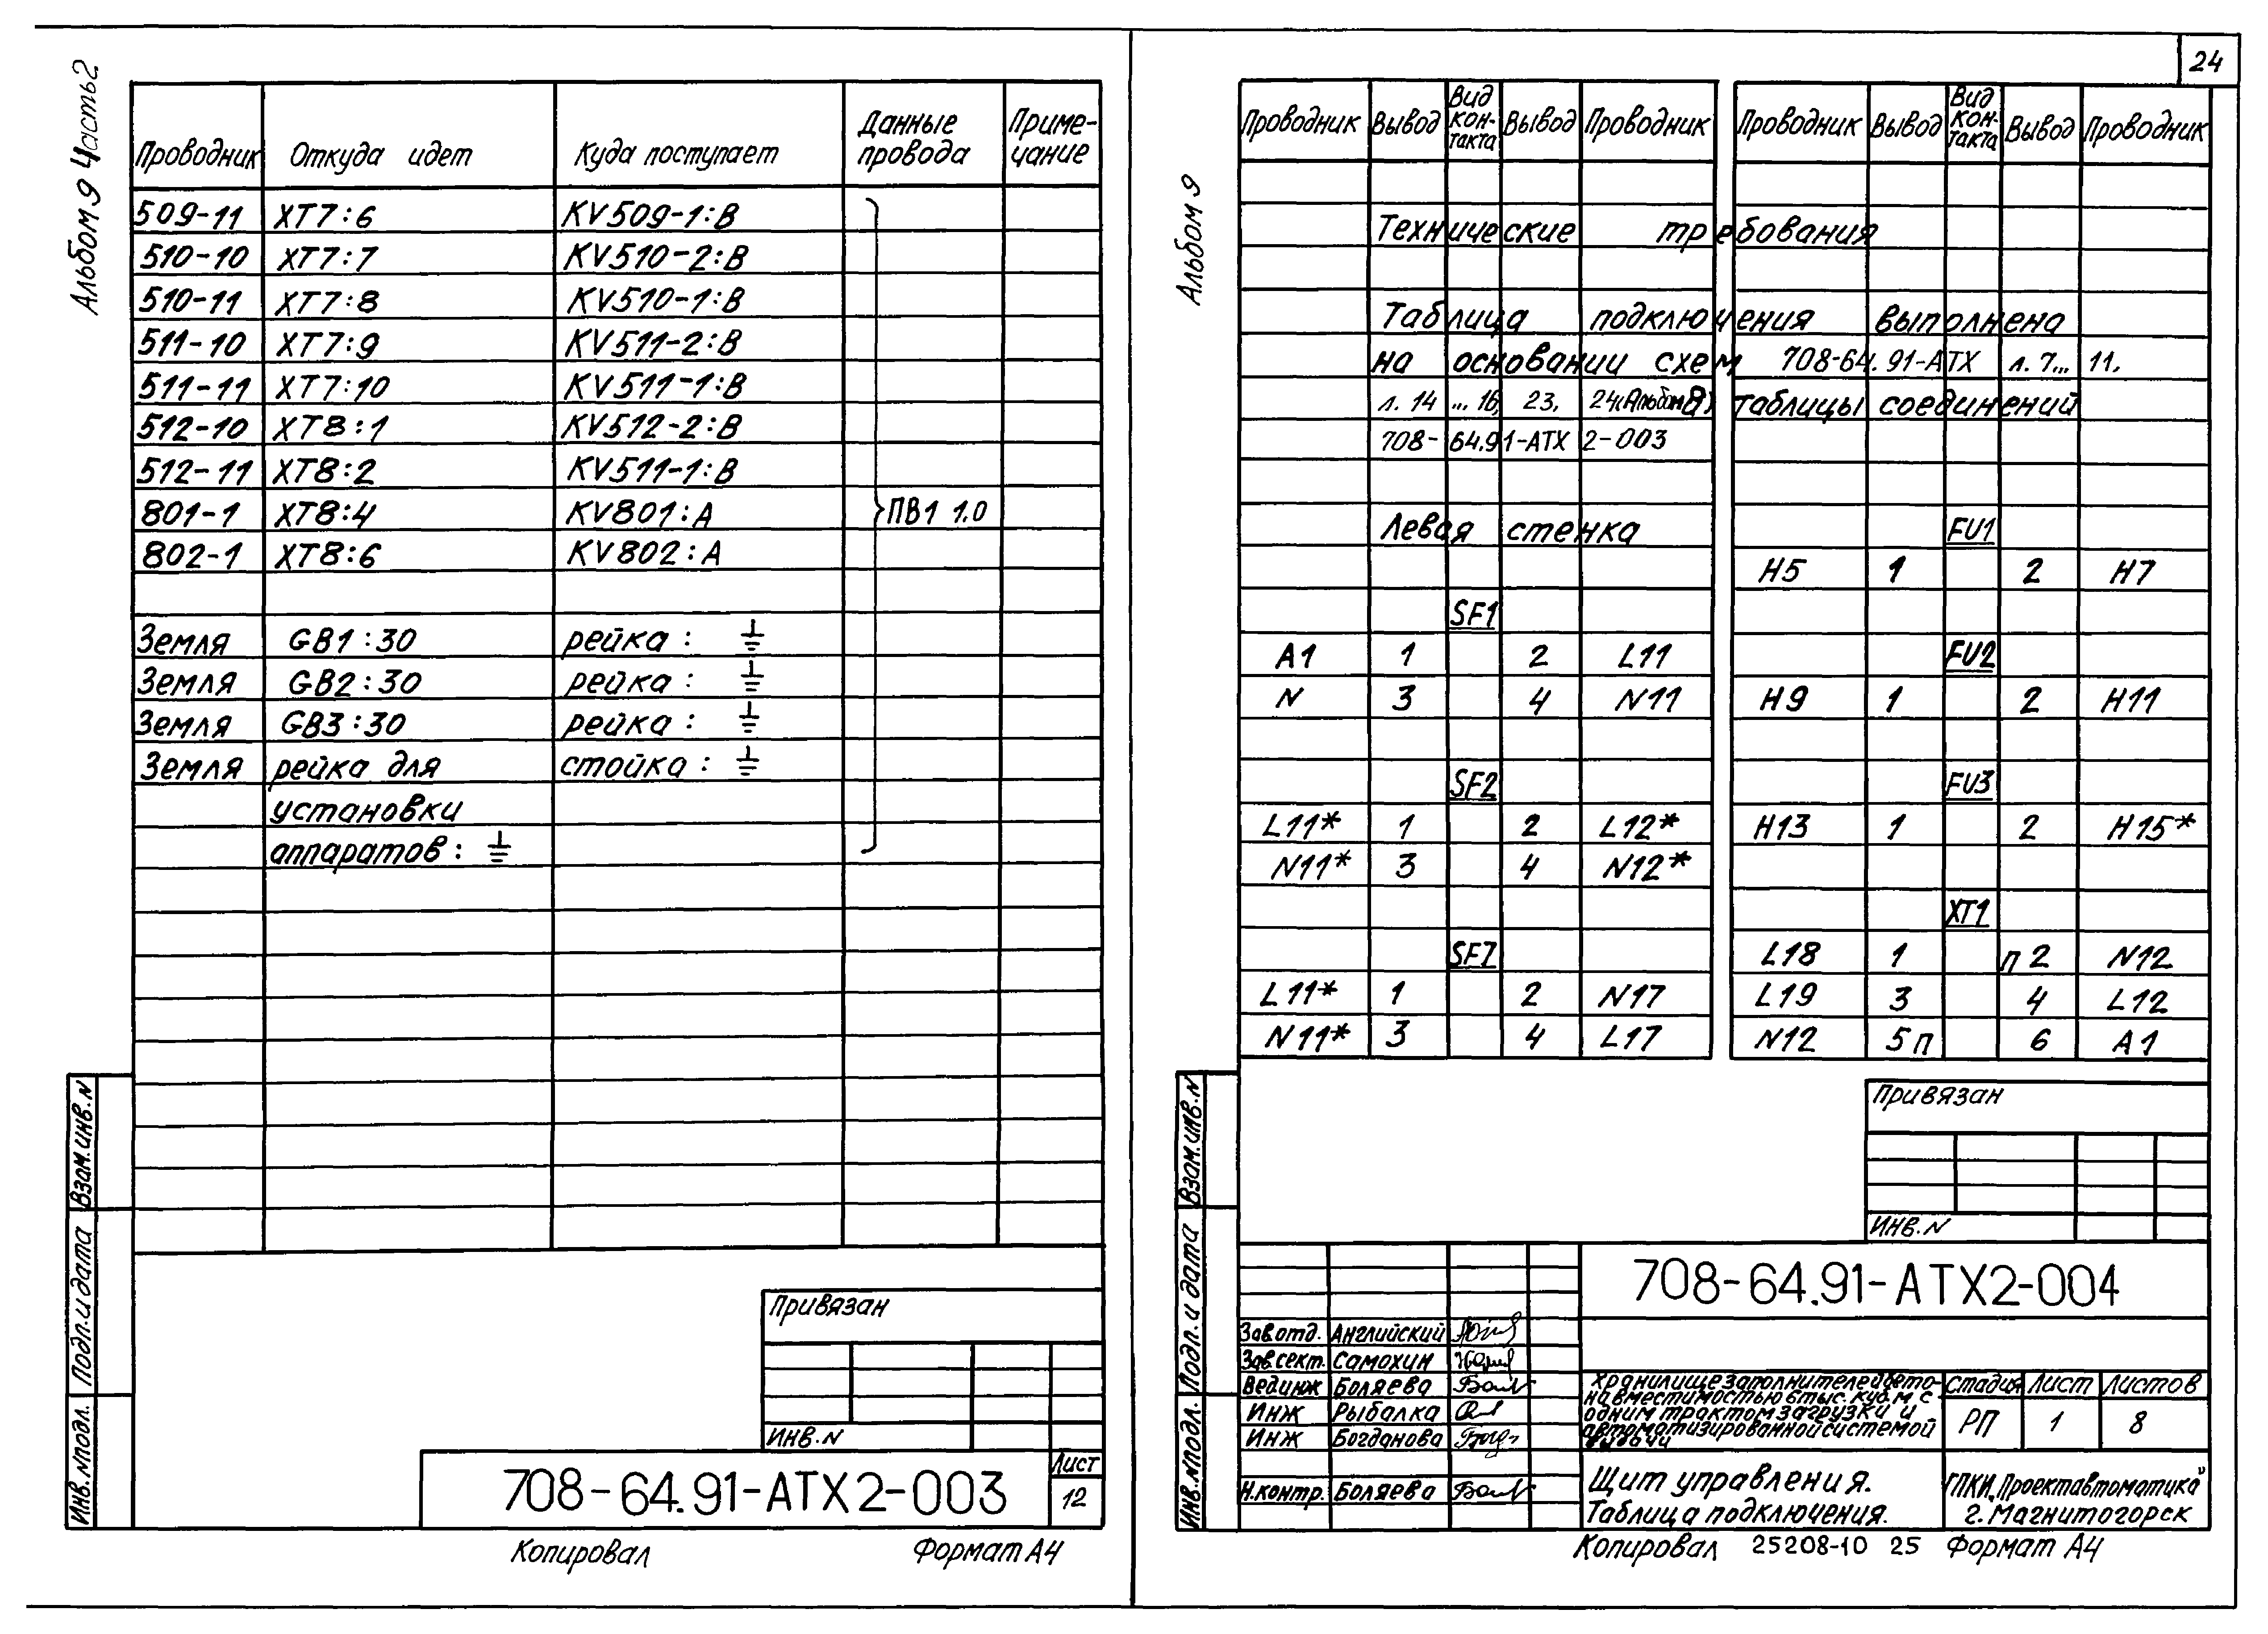 24
Альбом 9 Часть 2
Проводник Откуда идет Куда поступает Данные провода Приме-чание
509-11 XT7:6 KV509-1:В
510-10 XT7:7 KV510-2:В
510-11 XT7:8 KV510-1:В
511-10 XT7:9 KV511-2:В
511-11 XT7:10 KV511-1:В
512-10 XT8:1 KV512-2:В
512-11 XT8:2 KV511-1:В
801-1 XT8:4 KV801:А ПВ1 1.0
802-1 XT8:6 KV802:А
Земля GB1:30 рейка: ⏚
Земля GB2:30 рейка: ⏚
Земля GB3:30 рейка: ⏚
Земля рейка для стойка: ⏚
установки
аппаратов: ⏚
Взам.инв.N
Подп. и дата
Инв.Nподл.
Привязан
Инв.N
708-64.91-АТХ2-003
Лист
12
Копировал Формат А4
Альбом 9
Проводник Вывод Вид кон-такта Вывод Проводник
Проводник Вывод Вид кон-такта Вывод Проводник
Технические требования
Таблица подключения выполнена
на основании схем 708-64.91-АТХ л. 7... 11,
л. 14 ... 16, 23, 24 (Альбом 8) таблицы соединений
708-64.91-АТХ 2-003
Левая стенка
SF1
А1 1 2 L11
N 3 4 N11
SF2
L11* 1 2 L12*
N11* 3 4 N12*
SF7
L11* 1 2 N17
N11* 3 4 L17
FU1
Н5 1 2 Н7
FU2
Н9 1 2 Н11
FU3
Н13 1 2 Н15*
XT1
L18 1 п 2 N12
L19 3 4 L12
N12 5 п 6 А1
Взам.инв.N
Подп. и дата
Инв.Nподл.
Привязан
Инв.N
708-64.91-АТХ2-004
Зав.отд. Английский
Зав.сект. Самохин
Вед.инж Боляева
Инж Рыбалка
Инж Богданова
Н.контр. Боляева
Хранилище заполнителей бето-
на вместимостью 6 тыс. куб. м с
одним трактом загрузки и
автоматизированной системой
выдачи
Стадия Лист Листов
РП 1 8
Щит управления.
Таблица подключения.
ГПКИ „Проектавтоматика"
г. Магнитогорск
Копировал 25208-10 25 Формат А4